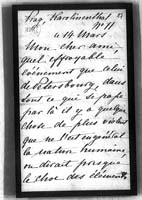 Prag Karolinenthal
N° 11
14 Mars.
Mon cher ami,
quel effroyable
événement que celui
de Petersbourg; dans
tout ce qui se passe
par là il y a quelque
chose de plus violent
que ne l'est en général
la nature humaine
on dirait presque
le choc des éléments